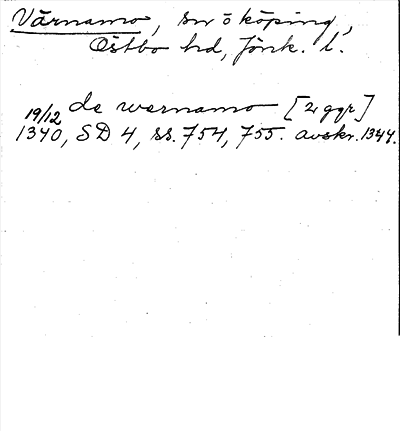 Värnamo, sn o köping,
Östbo hd, Jönk. l.
de wernamo [2 ggr]
19/12
1340, SD 4, ss. 754, 755. avskr. 1344.